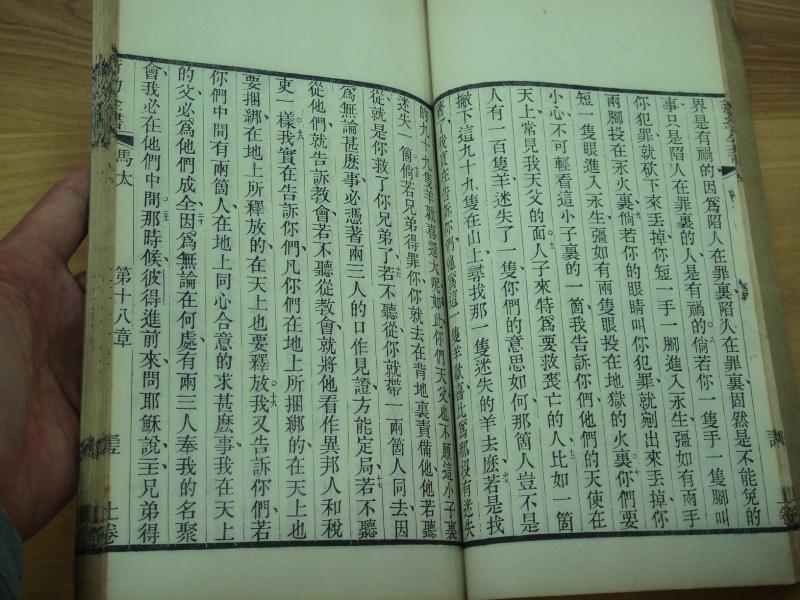 界是有禍的因爲陷人在罪裏陷人在罪裏固然是不能免的
事只是陷人在罪裏的人是有禍的倘若你一隻手一隻腳叫
你犯罪就砍下來丟掉你短一手一腳進入永生彊如有兩手
兩腳投在永火裏倘若你的眼睛叫你犯罪就剜出來丟掉你
短一隻眼進入永生彊如有兩隻眼投在地獄的火裏你們要
小心不可輕看這小子裏的一箇我告訴你們他們的天使在
天上常見我天父的面人子來特爲要救喪亡的人比如一箇
人有一百隻羊迷失了一隻你們的意思如何那箇人豈不是
撇下這九十九隻在山上尋找那一隻迷失的羊去麽若是找
著了我實在告訴你們他爲這一隻羊歡喜比爲那沒有迷失
的九十九隻羊歡喜還大呢如此你們天父也不願這小子裏
迷失一箇倘若兄弟得罪你你就去在背地裏責備他他若聽
從就是你救了你兄弟了若不聽從你就帶一兩箇人同去因
爲無論甚麽事必憑著兩三人的口作見證方能定局若不聽
從他們就告訴教會若不聽從教會就將他看作異邦人和稅
吏一樣我實在告訴你們凡你們在地上所捆綁的在天上也
要捆綁在地上所釋放的在天上也要釋放我又告訴你們若
你們中間有兩箇人在地上同心合意的求甚麽事我在天上
的父必爲他們成全因爲無論在何處有兩三人奉我的名聚
會我必在他們中間那時候彼得進前來問耶穌說主兄弟得
馬太 第十八章 上卷